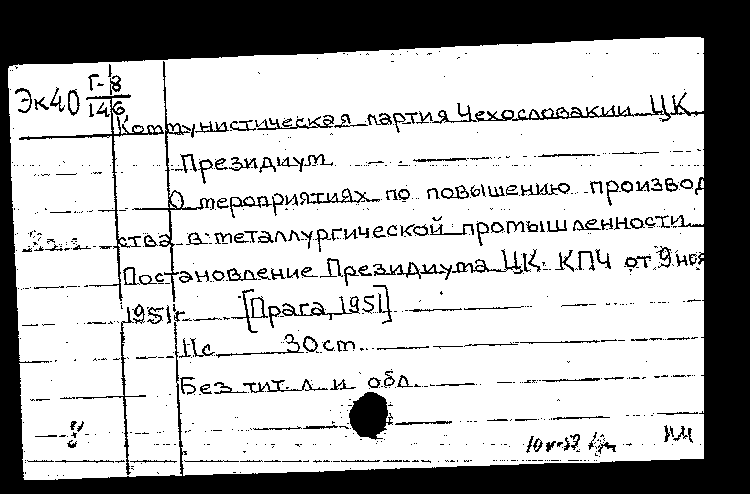 Эк40 Г-8
146
Коммунистическая партия Чехословакии ЦК.
Президиум
О мероприятиях по повышению производ
ства в металлургической промышленности
Постановление Президиума ЦК КПЧ от 9 ноя
1951г. [Прага, 1951]
11с. 30 ст.
Без тит. л. и обл.